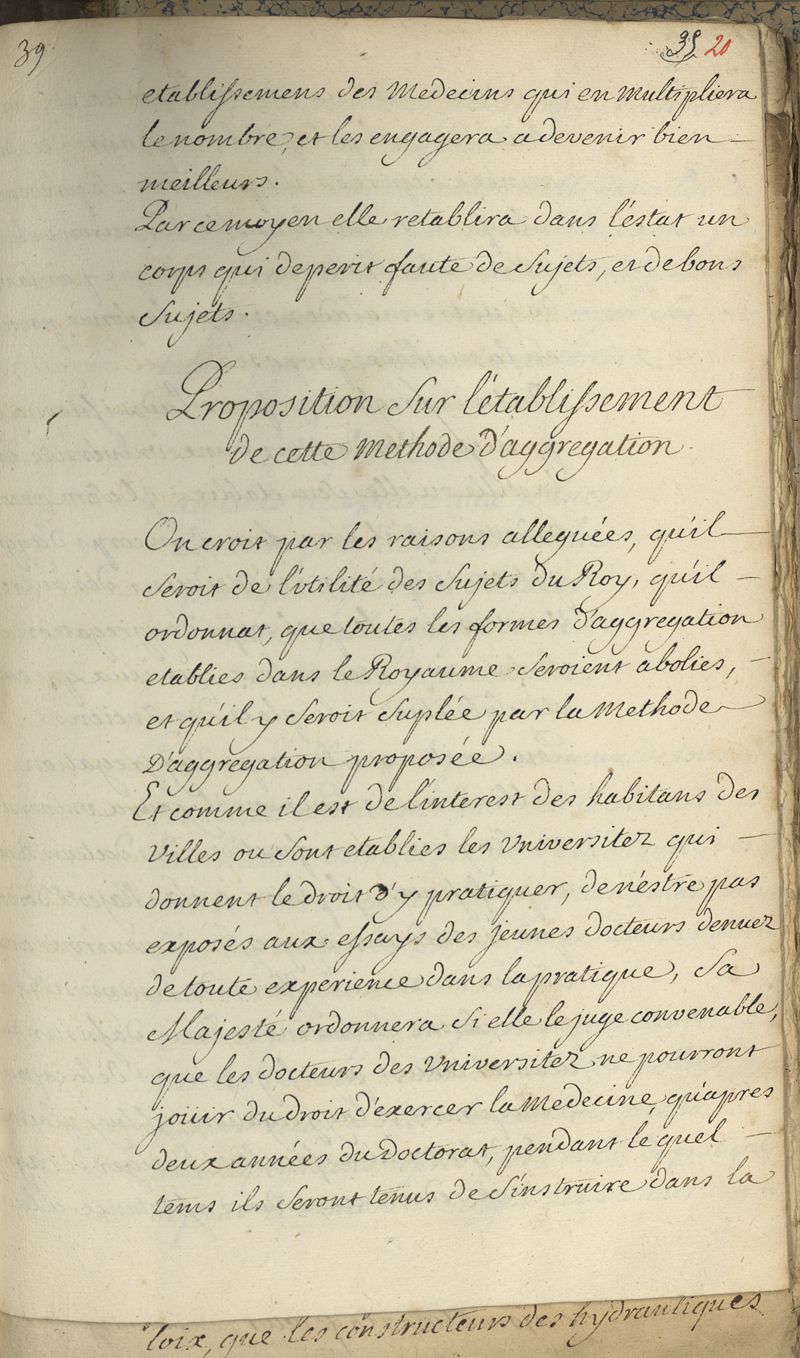 39
39 20
etablissemens des Medecins qui en multipliera
le nombre, et les engagera a devenir bien
meilleurs.
Par ce moyen elle retablira dans l'éstat un
corps qui deperit faute de sujets, et de bons
sujets.
Proposition sur l'établissement
de cette Methode d'aggregation
On croit par les raisons alleguées, qu'il
seroit de l'vtilité des sujets du Roy, qu'il
ordonnat, que toutes les formes d'aggregation
etablies dans le Royaume seroient abolies,
et qu'il y seroit suplée par la Methode
D'aggregation proposée.
Et comme il est de l'interest des habitans des
Villes ou sont etablies les Vniversitez qui
donnent le droit d'y pratiquer, de n'éstre pas
exposés aux essays des jeunes docteurs denuez
de toute experience dans la pratique, Sa
Majesté ordonnera si elle le juge convenable,
que les docteurs des Vniversitez ne pourront
joüir du droit d'exercer la Medecine, qu'apres
deux années du Doctorat, pendant le quel
tems ils seront tenus de s'instruire dans la
loix, que les constructeurs des hydrauliques